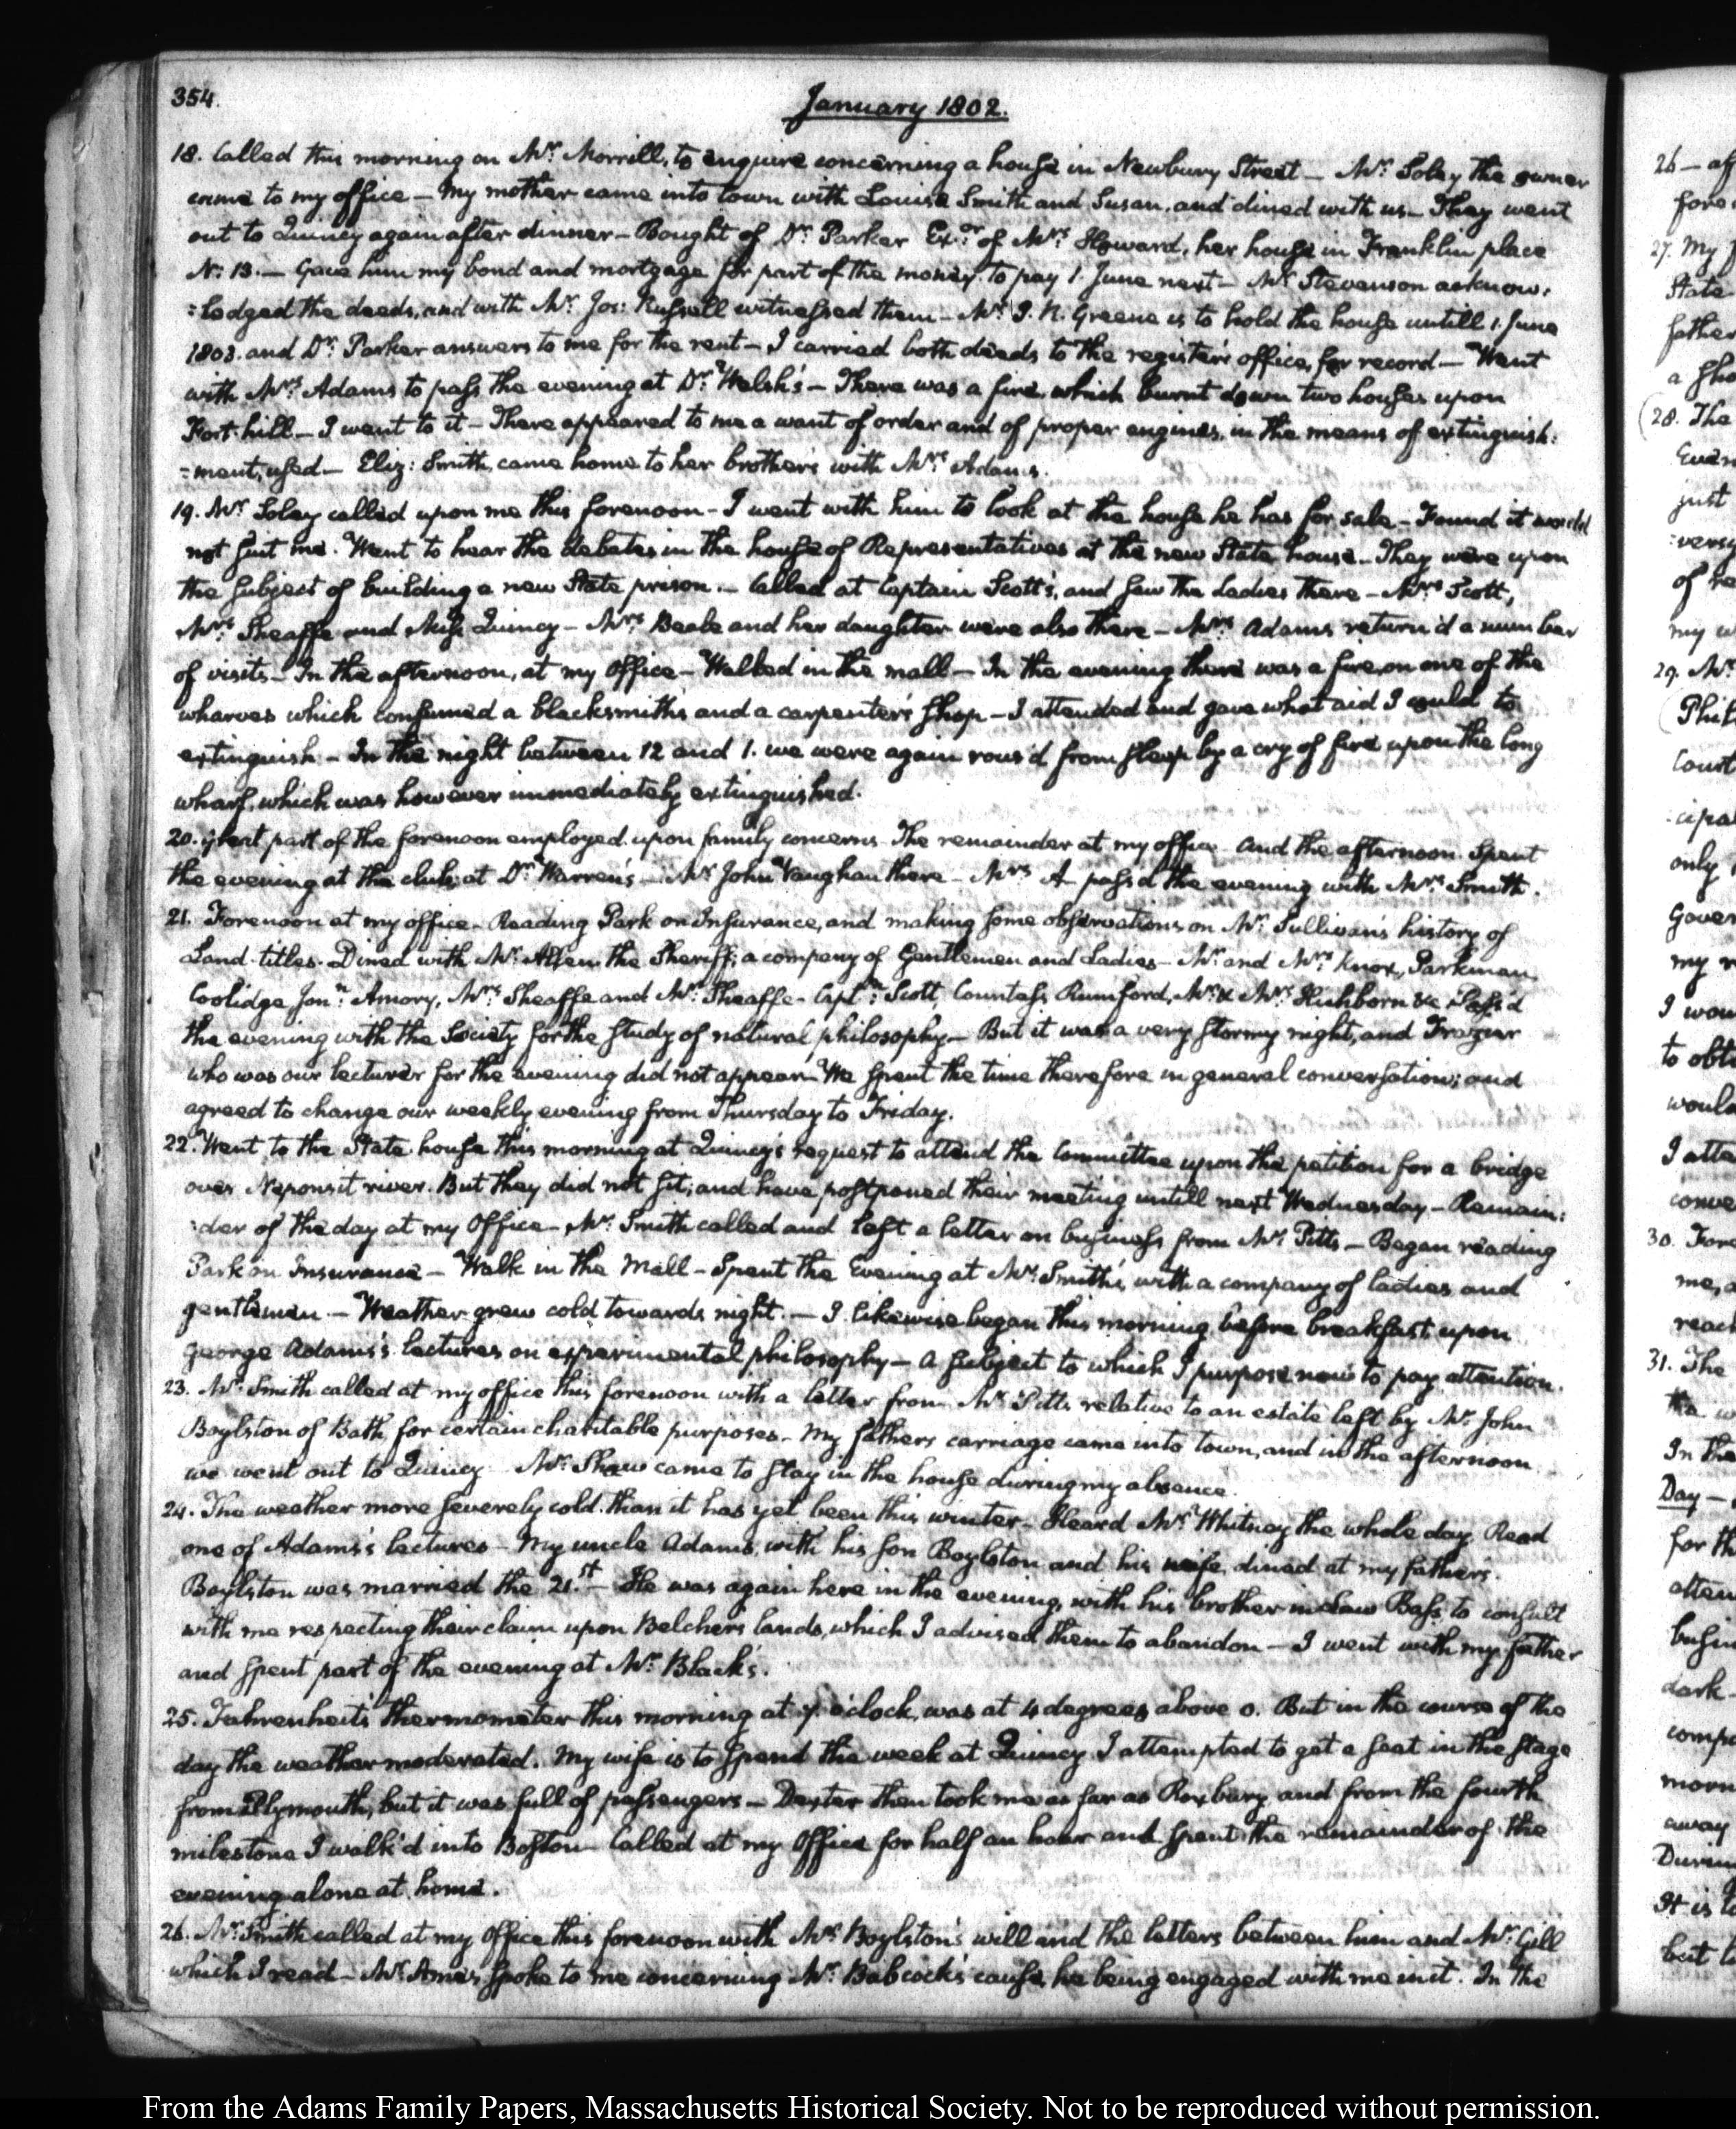 354.
January 1802.
18. Called this morning on Mr. Morrill, to enquire concerning a house in Newbury Street — Mr. Soley the owner
came to my office — My mother came into town with Louisa Smith and Susan, and dined with us — They went
out to Quincy again after dinner — Bought of Dr. Parker Exor. of Mrs. Howard, her house in Franklin place
N: 13. — Gave him my bond and mortgage for part of the money, to pay 1. June next — Mr. Stevenson acknow:
:ledged the deeds, and with Mr. Jos: Russell witnessed them — Mr. G. R. Greene is to hold the house untill 1. June
1803. and Dr. Parker answers to me for the rent — I carried both deeds to the register's office, for record — Went
with Mrs. Adams to pass the evening at Dr. Welsh's — There was a fire, which burnt down two houses upon
Fort-hill — I went to it — There appeared to me a want of order and of proper engines, in the means of extinguish:
:ment, used — Eliz: Smith, came home to her brother's with Mrs. Adams.
19. Mr. Soley called upon me this forenoon — I went with him to look at the house he has for sale — Found it would
not suit me. Went to hear the debates in the house of Representatives at the new State house — They were upon
the subject of building a new State prison. — Called at Captain Scott's, and saw the Ladies there — Mrs. Scott,
Mrs. Sheaffe and Miss Quincy — Mrs. Beale and her daughter were also there — Mrs. Adams return'd a number
of visits — In the afternoon, at my Office — Walked in the mall — In the evening there was a fire on one of the
wharves which consumed a blacksmith's and a carpenter's shop — I attended and gave what aid I could to
extinguish — In the night between 12 and 1. we were again rous'd from sleep by a cry of fire upon the long
wharf, which was however immediately extinguished.
20. great part of the forenoon employed upon family concerns. The remainder at my office and the afternoon. Spent
the evening at the club, at Dr. Warren's — Mr. John Vaughan there — Mrs. A pass'd the evening with Mrs. Smith.
21. Forenoon at my office — Reading Park on Insurance, and making some observations on Mr. Sullivan's history of
Land-titles. Dined with Mr. Allen the Sheriff; a company of Gentlemen and Ladies — Mr. and Mrs. Knox, Parkman,
Coolidge, Jonn. Amory, Mrs. Sheaffe and Mr. Sheaffe — Captn. Scott, Countess Rumford, Mr. & Mrs. Hichborn &c Pass'd
the evening with the Society for the study of natural philosophy — But it was a very stormy night, and Frazier
who was our lecturer for the evening did not appear — We spent the time therefore in general conversation; and
agreed to change our weekly evening from Thursday to Friday.
22. Went to the State-house this morning at Quincy's request to attend the Committee upon the petition for a bridge
over Neponsit river. But they did not sit; and have postponed their meeting untill next Wednesday — Remain:
:der of the day at my Office — Mr. Smith called and left a letter on business from Mr. Pitts — Began reading
Park on Insurance — Walk in the Mall — Spent the Evening at Mr. Smith's, with a company of ladies and
gentlemen. — Weather grew cold towards night. — I likewise began this morning before breakfast upon
George Adams's lectures on experimental philosophy — A subject to which I purpose now to pay attention.
23. Mr. Smith called at my office this forenoon with a letter from Mr. Pitts relative to an estate left by Mr. John
Boylston of Bath, for certain charitable purposes — My fathers carriage came into town, and in the afternoon
we went out to Quincy. Mr. Shaw came to stay in the house during my absence.
24. The weather more severely cold than it has yet been this winter — Heard Mr. Whitney the whole day. Read
one of Adams's lectures — My uncle Adams, with his son Boylston and his wife, dined at my father's.
Boylston was married the 21.st — He was again here in the evening, with his brother in law Bass, to consult
with me respecting their claim upon Belcher's lands, which I advised them to abandon — I went with my father
and spent part of the evening at Mr. Black's.
25. Fahrenheit's thermometer this morning at 7. o'clock, was at 4 degrees above 0. But in the course of the
day the weather moderated. My wife is to spend the week at Quincy. I attempted to get a seat in the stage
from Plymouth, but it was full of passengers — Dexter then took me as far as Roxbury and from the fourth
milestone I walk'd into Boston — Called at my Office for half an hour and spent the remainder of the
evening alone at home.
26. Mr. Smith called at my Office this forenoon with Mr. Boylston's will and the letters between him and Mr. Gill
which I read — Mr. Ames spoke to me concerning Mr. Babcock's cause, he being engaged with me in it. In the
26 — af
fore
27. My
State
father
28. The
Even
just
of re
29. Mr.
Court
only
Gover
my
I wou
to obt
would
I atte
conve
30. Fore
me,
reac
31. The
In the
Day —
for th
atten
busin
dark
comp
morn
away
Durin
It is
but
From the Adams Family Papers, Massachusetts Historical Society. Not to be reproduced without permission.